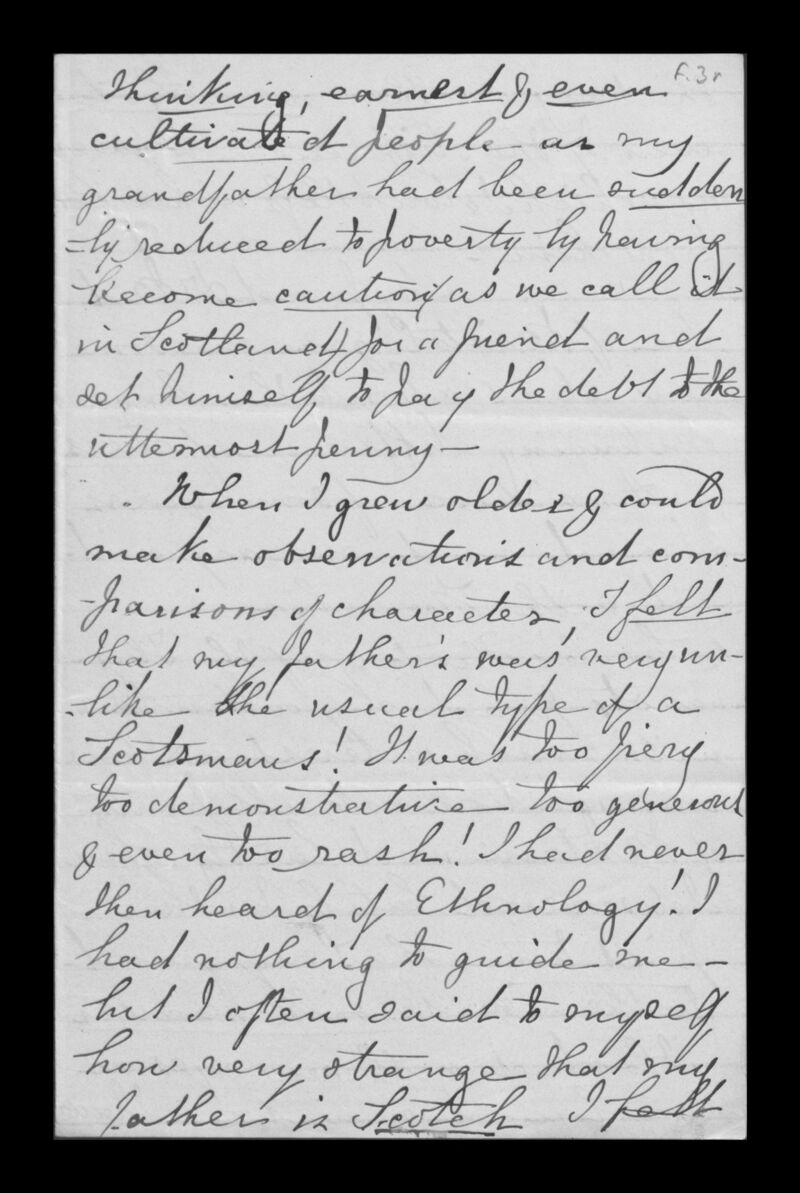 f. 3r
thinking, earnest & even
cultivated people - as my
grandfather had been sudden
-ly reduced to poverty by having
become caution (as we call it
in Scotland) for a friend and
set himself to pay the debt to the
uttermost penny —
When I grew older & could
make observations and com-
-parisons of character, I felt
that my father's was very un-
-like the usual type of a
Scotsmans! It was too fiery
too demonstrative too generous
& even too rash! I had never
then heard of Ethnology! I
had nothing to guide me —
but I often said to myself
how very strange that my
father is Scotch I felt